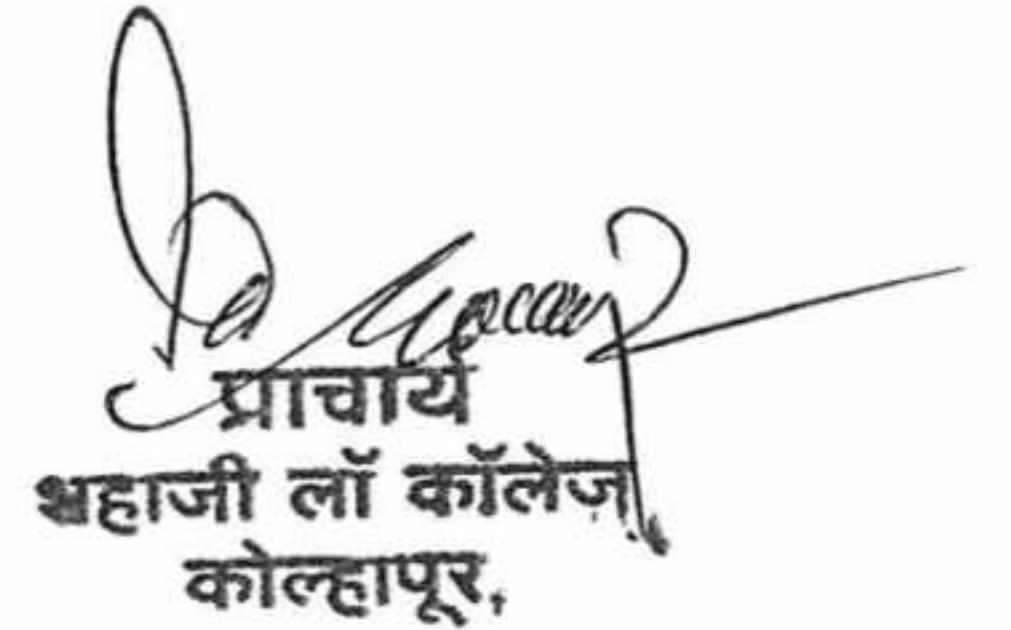 प्राचार्य
शहाजी लॉ कॉलेज,
कोल्हापूर,